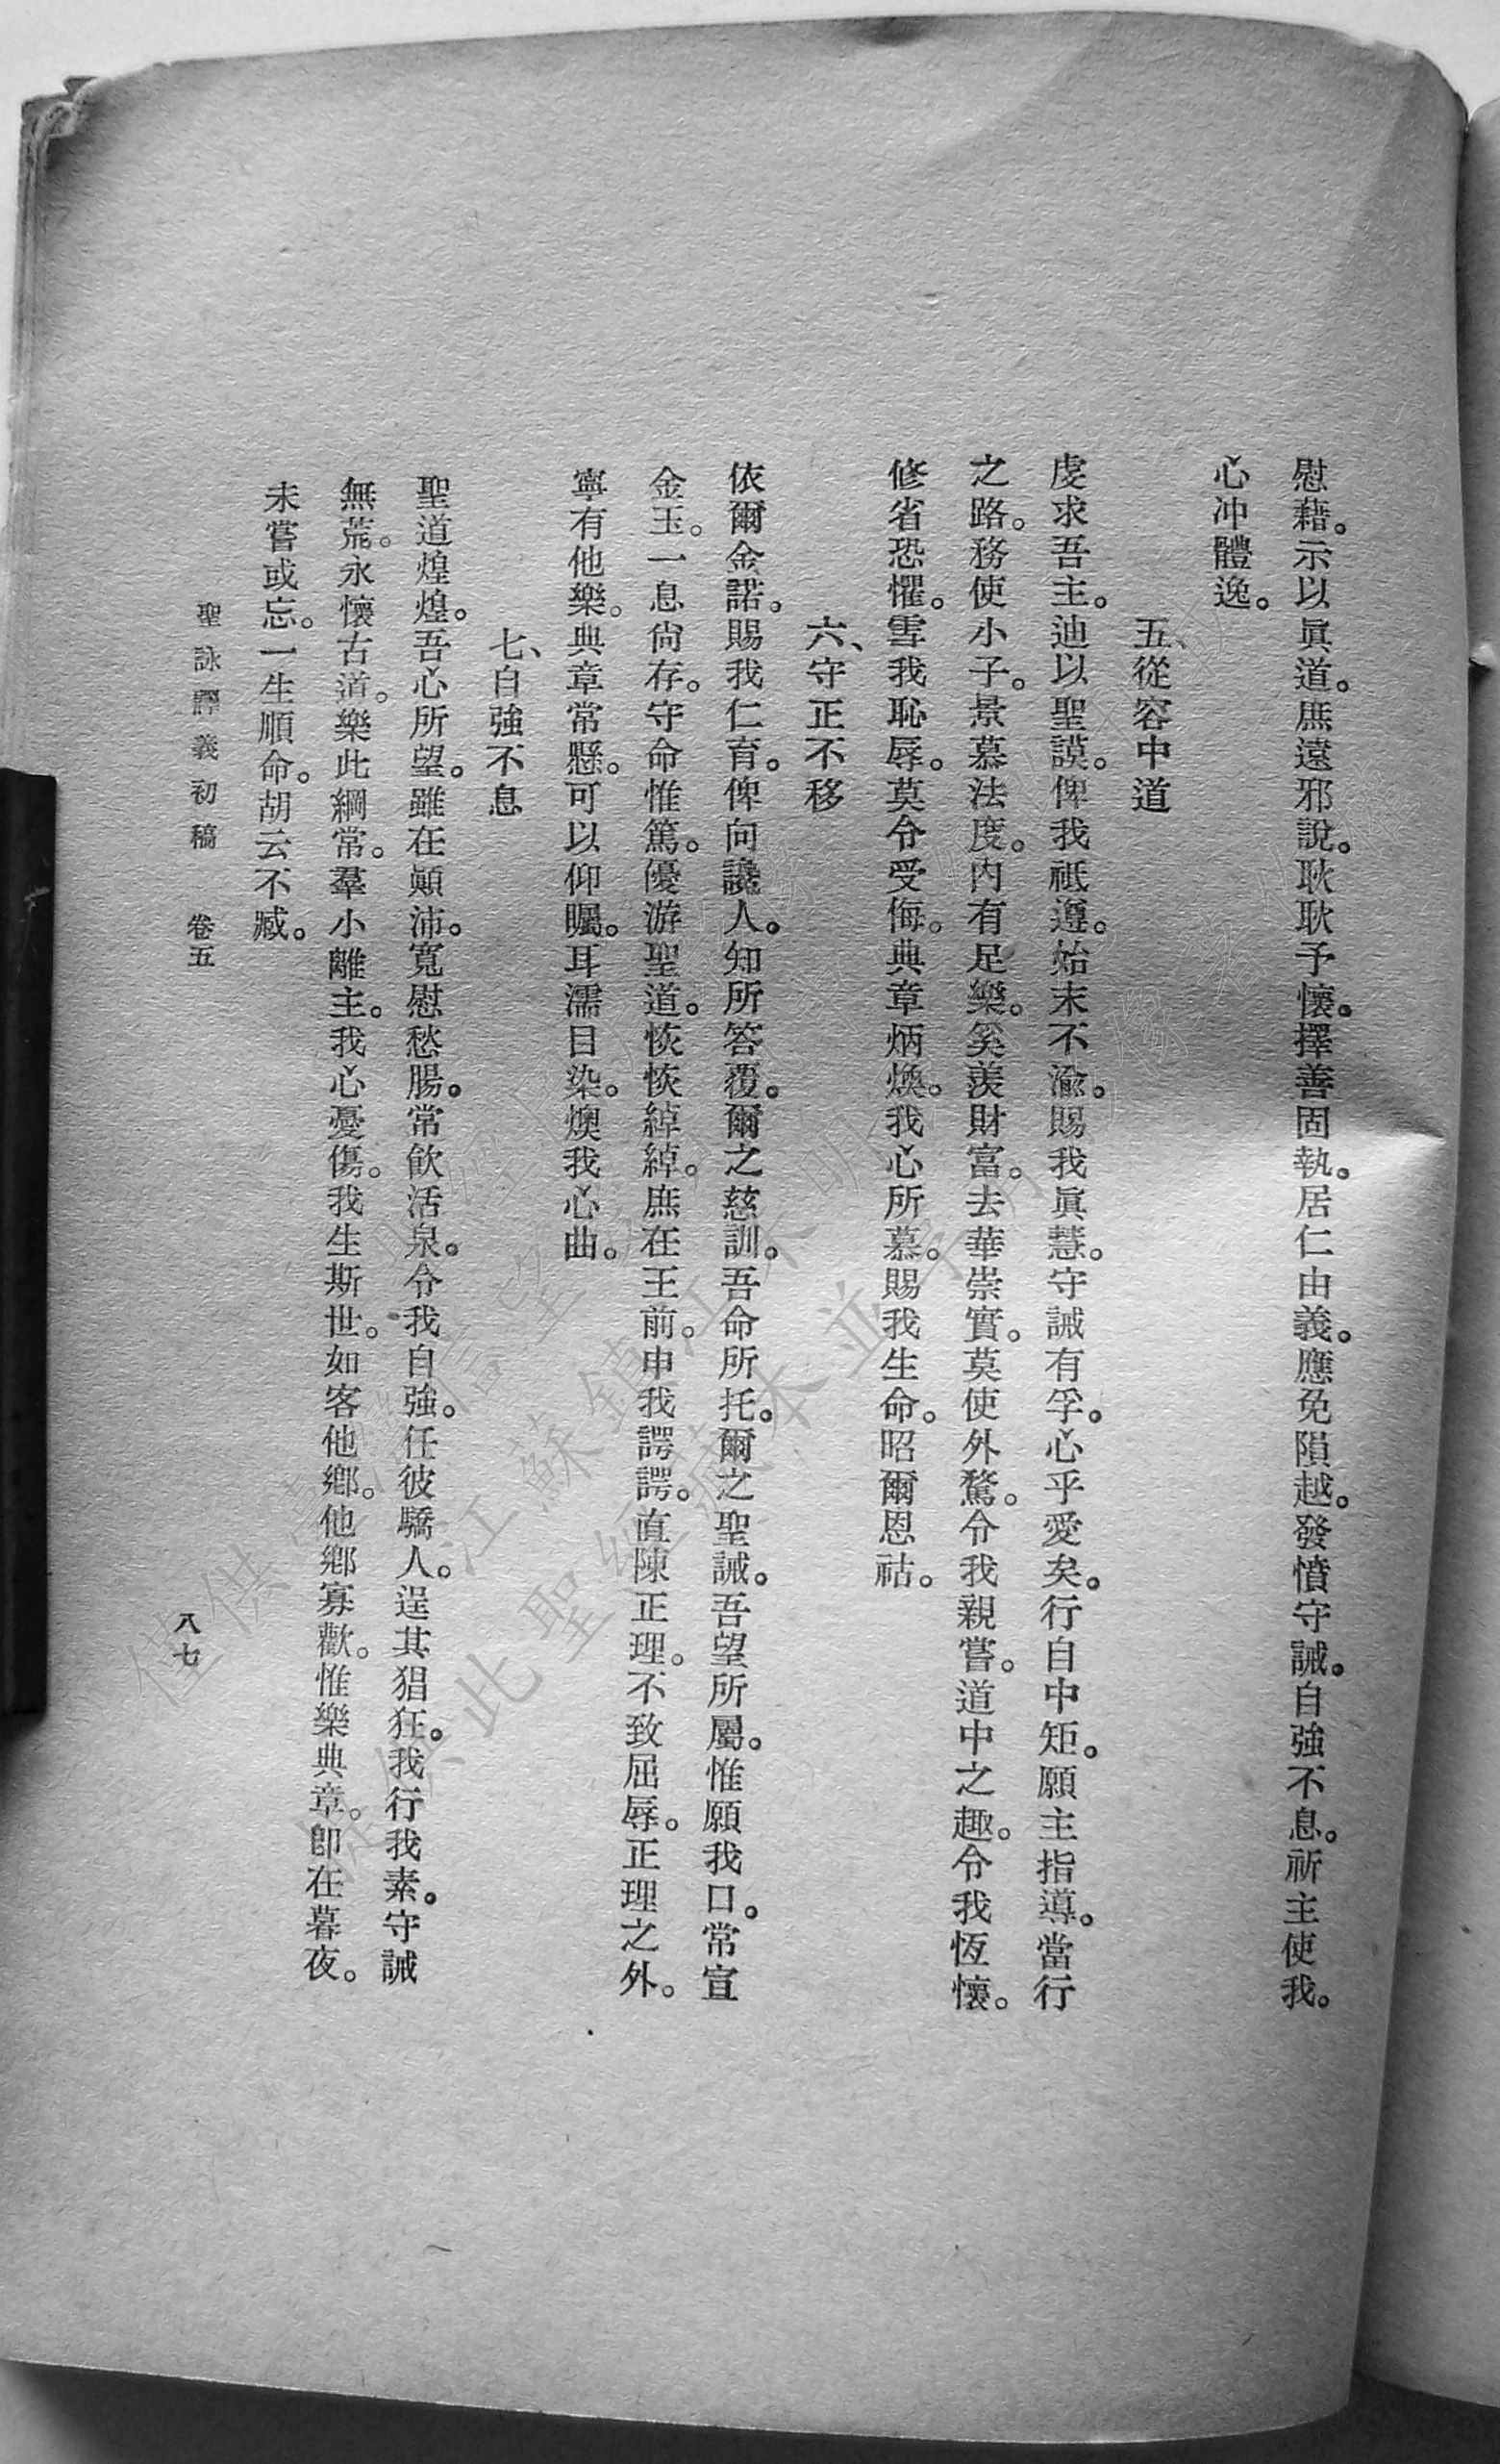 慰藉。示以眞道。庶遠邪說。耿耿予懷。擇善固執。居仁由義。應免隕越。發憤守誡。自強不息。祈主使我。
心冲體逸。
五、從容中道
虔求吾主。迪以聖謨。俾我祗遵。始末不渝。賜我眞慧。守誡有孚。心乎愛矣。行自中矩。願主指導。當行
之路。務使小子。景慕法度。內有足樂。奚羨財富。去華崇實。莫使外騖。令我親嘗。道中之趣。令我恆懷。
修省恐懼。雪我恥辱。莫令受侮。典章炳煥。我心所慕。賜我生命。昭爾恩祜。
六、守正不移
依爾金諾。賜我仁育。俾向讒人。知所答覆。爾之慈訓。吾命所托。爾之聖誡。吾望所屬。惟願我口。常宣
金玉。一息尙存。守命惟篤。優游聖道。恢恢綽綽。庶在王前。申我諤諤。直陳正理。不致屈辱。正理之外。
寧有他樂。典章常懸。可以仰矚。耳濡目染。燠我心曲。
七、自強不息
聖道煌煌。吾心所望。雖在顚沛。寬慰愁腸。常飮活泉。令我自強。任彼驕人。逞其猖狂。我行我素。守誡
無荒。永懷古道。樂此綱常。羣小離主。我心憂傷。我生斯世。如客他鄉。他鄉寡歡。惟樂典章。卽在暮夜。
未嘗或忘。一生順命。胡云不臧。
聖詠譯義初稿 卷五
八七